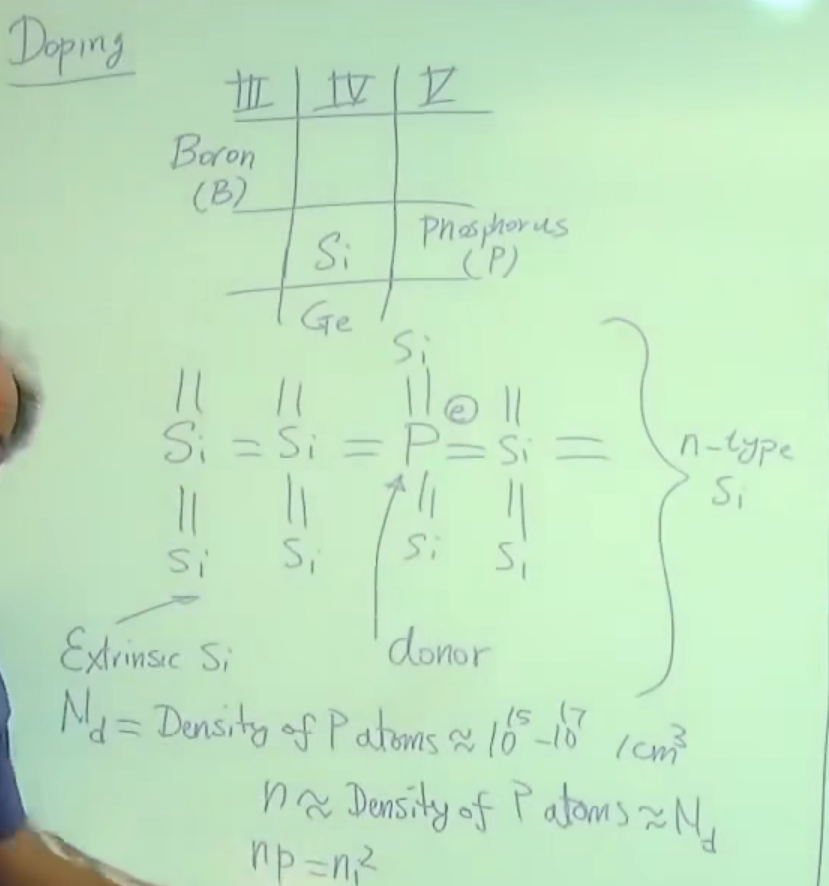 Doping
III IV V
Boron
(B)
Si
Phosphorus
(P)
Ge
Si
Si = Si = P = Si =
e
Si Si Si Si
n-type
Si
Extrinsic Si
donor
N_d = Density of P atoms ≈ 10^15 - 10^17 /cm^3
n ≈ Density of P atoms ≈ N_d
np = n_i^2